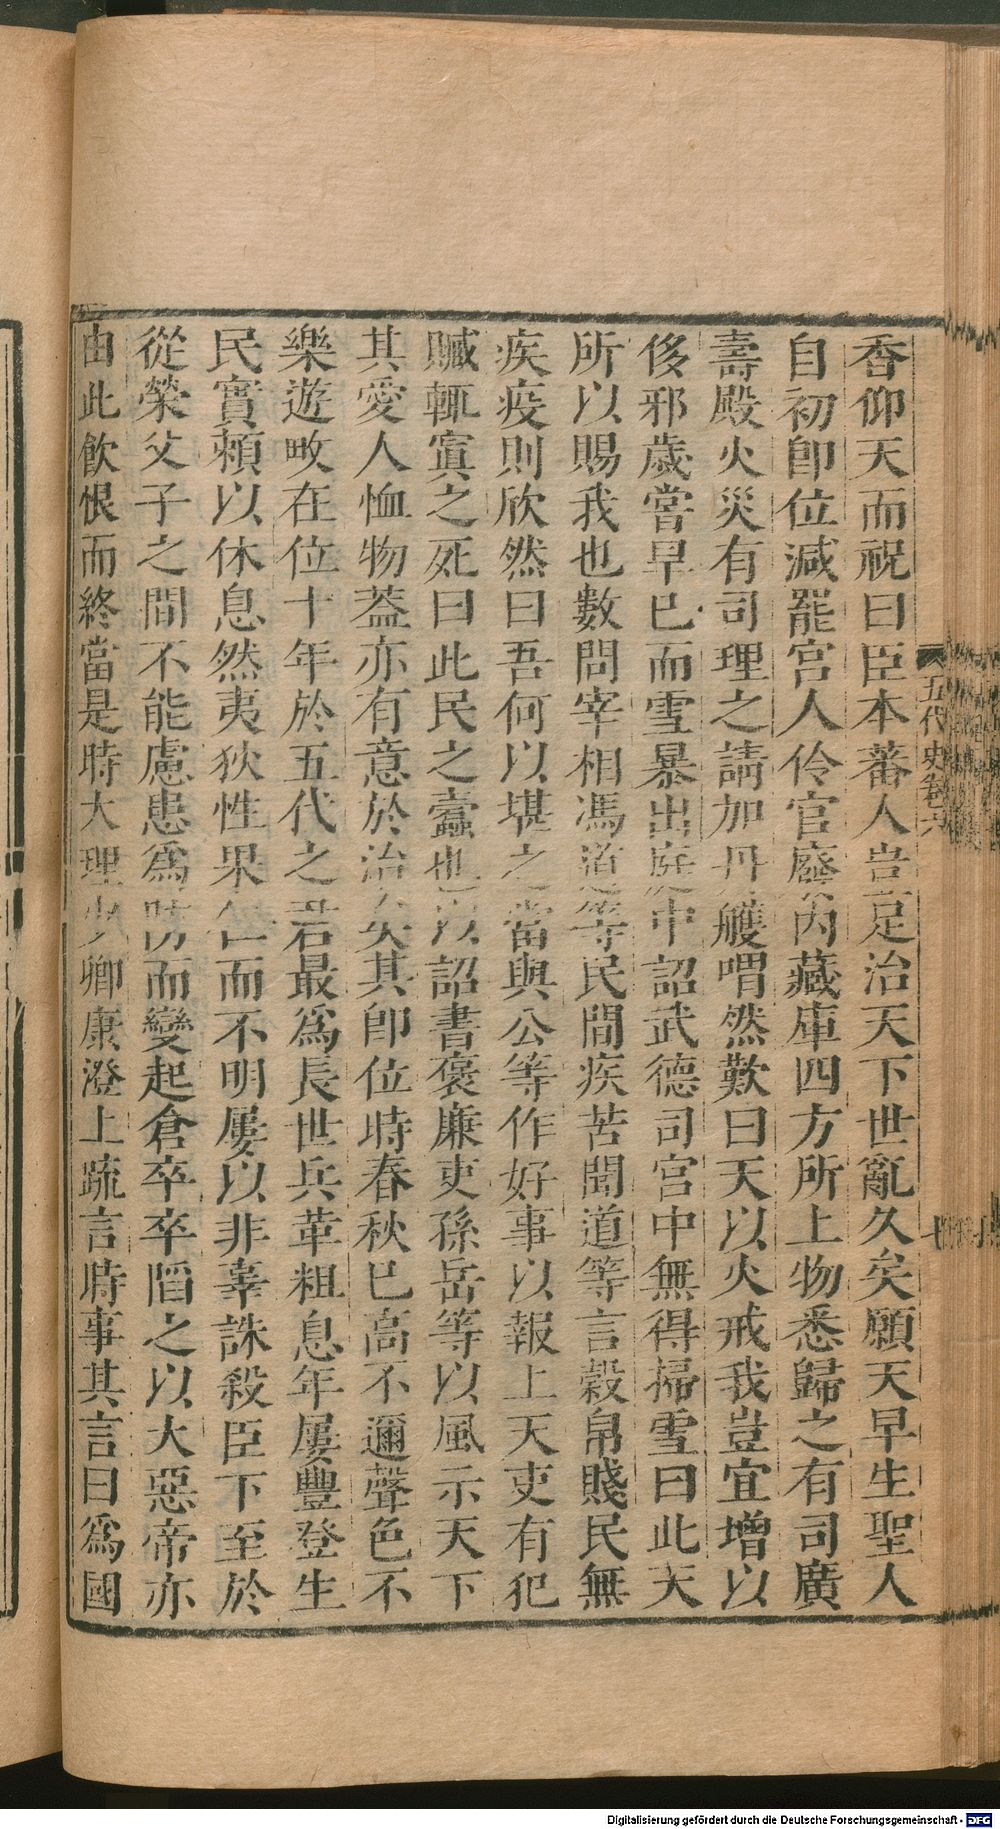 香仰天而祝曰臣本蕃人豈足治天下世亂久矣願天早生聖人
自初卽位減罷宮人伶官廢內藏庫四方所上物悉歸之有司廣
壽殿火災有司理之請加丹雘喟然歎曰天以火戒我豈宜增以
侈邪歲嘗旱已而雪暴出庭中詔武德司宮中無得掃雪曰此天
所以賜我也數問宰相馮道等民間疾苦聞道等言穀帛賤民無
疾疫則欣然曰吾何以堪之當與公等作好事以報上天吏有犯
贓輒寘之死曰此民之蠹也以詔書褒廉吏孫岳等以風示天下
其愛人恤物葢亦有意於治矣其卽位時春秋已高不邇聲色不
樂遊畋在位十年於五代之君最爲長世兵革粗息年屢豐登生
民實賴以休息然夷狄性果仁而不明屢以非辜誅殺臣下至於
從榮父子之間不能慮患爲防而變起倉卒卒陷之以大惡帝亦
由此飮恨而終當是時大理少卿康澄上疏言時事其言曰爲國
五代史卷六
七
Digitalisierung gefördert durch die Deutsche Forschungsgemeinschaft - DFG